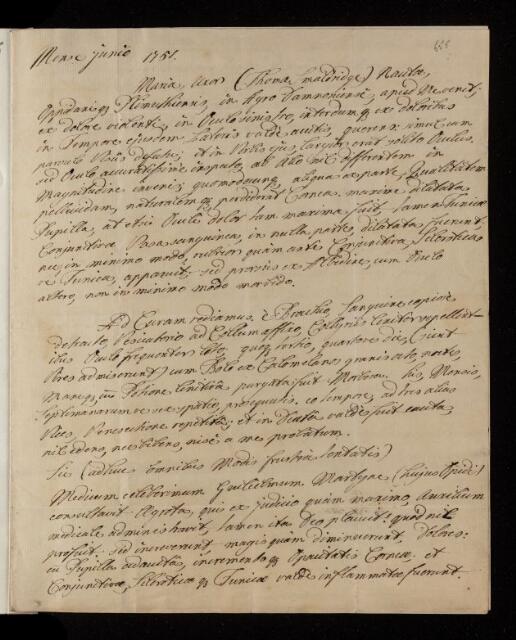 Mense junio 1751.
Maria Uxor (Thomæ Maldridge) Nautæ,
Oppidariæq Plimuthiensis, in Agro Damnoniense, apud me venit;
ex dolore violenti, in Oculo sinistro, interdumq ex doloribus
in Tempore ejusdem Lateris valde acutis, querens; simul cum
parvulo Visûs defectu; et in Orbis ejus largior erat solito Oculus,
sed Oculo accuratissime inspecto, ab Alio nil differentem in
Magnitudine inveni; quomodocunq aliqua ex parte, Qualitatem
pellucidam, naturalemq, perdiderat Cornea. maxime dilatata
Pupilla, at etsi Oculi dolor tam maxima fuit tamen Tunicæ
Conjunctivæ Vasa sanguinea, in nulla parte, dilatata fuerunt,
nec, in minimo modo, rubrior quàm ante Conjunctiva, Scleroticaq
ex Tunicæ, apparuit: sed prorsus ex Albedine, cum Oculo
altero, non in minimo modo morbido.
Ad Curam redeamus, e Brachio, Sanguine copiose
detracto, Vesicatorio ad Collum afflio, Collyriis leniter repellent-
ibus Oculo frequenter loto, quoq tertio, quartove die, (sicut
Vires admiserunt) cum Bolo ex Calomelanos granis octo, nocte,
Maneq, cum Potione lenitiva purgata fuit Morbosa. his, Mensis,
Septimanarum ve sex spatio, prosequutis. eo tempore, ad tres alias
Vices, Venesectione repetitâ; et in Diæta valde fuit cauta
nil edens, nec bibens, nisi a me probatum.
Sic (adhuc omnibus Modis frustra tentatis)
Medicum celeberrimum Guilielmum Martyne (hujus Opidi)
consultavit Ægrota, qui ex judicio quàm maximo, Auxilium
medicale administravit, tamen ita Deo placuit: quod nil
profuit. sed increverunt, magis quàm diminuerunt, Dolores:
cu Pupilla adaucta, incrementoq Opacitatis Corneæ. et
Conjunctiva, Scleroticaq Tunicæ valde inflammatæ fuerunt.